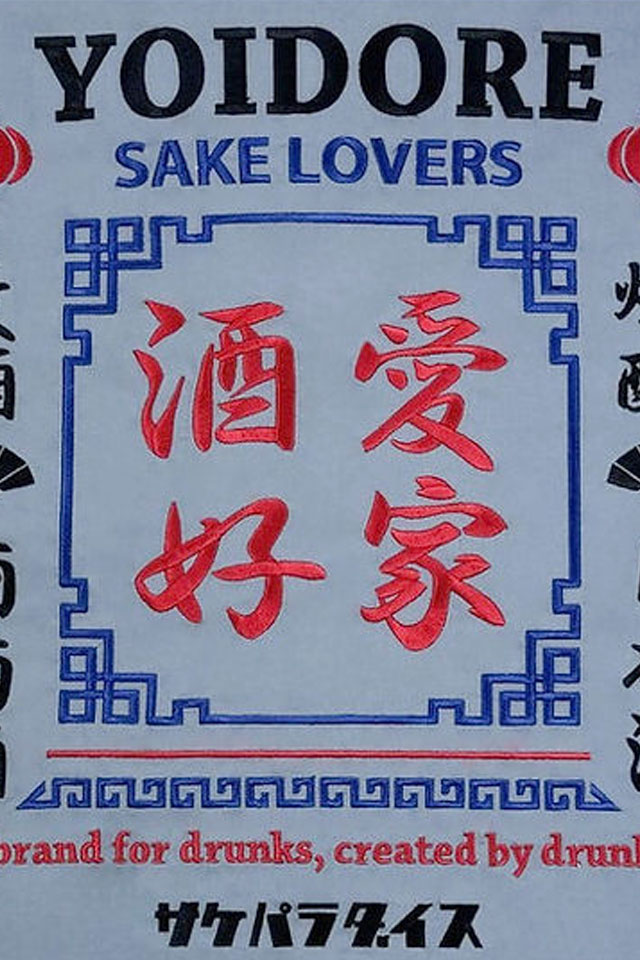 YOIDORE
SAKE LOVERS
愛家
酒好
brand for drunks, created by
サケパラダイス